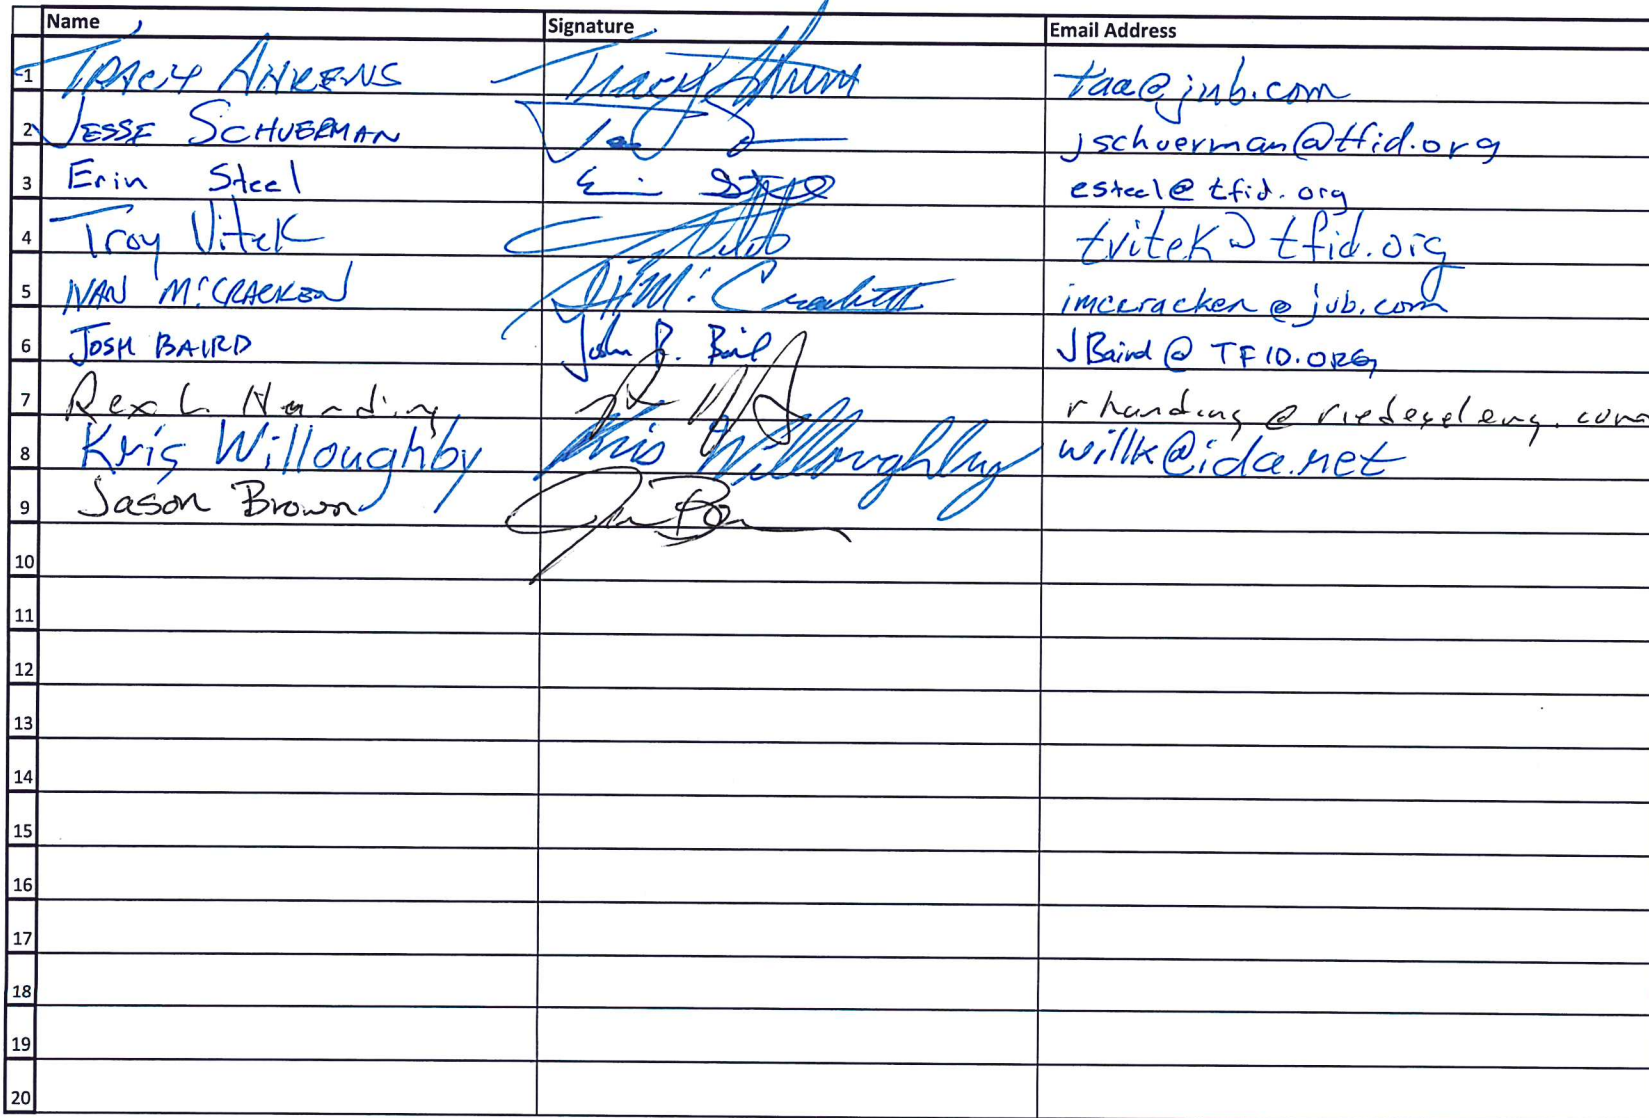 Name Signature Email Address
1 TRACY AHRENS Tracy Ahrens taa@jub.com
2 JESSE SCHUERMAN jschuerman@tfid.org
3 Erin Steel Erin Steel esteel@tfid.org
4 Troy Vitek tvitek@tfid.org
5 IVAN McCRACKEN McCracken imccracken@jub.com
6 JOSH BAIRD John R. Baird JBaird@TFID.ORG
7 Rex L. Harding rharding@riedeseleng.com
8 Kris Willoughby Kris Willoughby willk@ida.net
9 Jason Brown
10
11
12
13
14
15
16
17
18
19
20